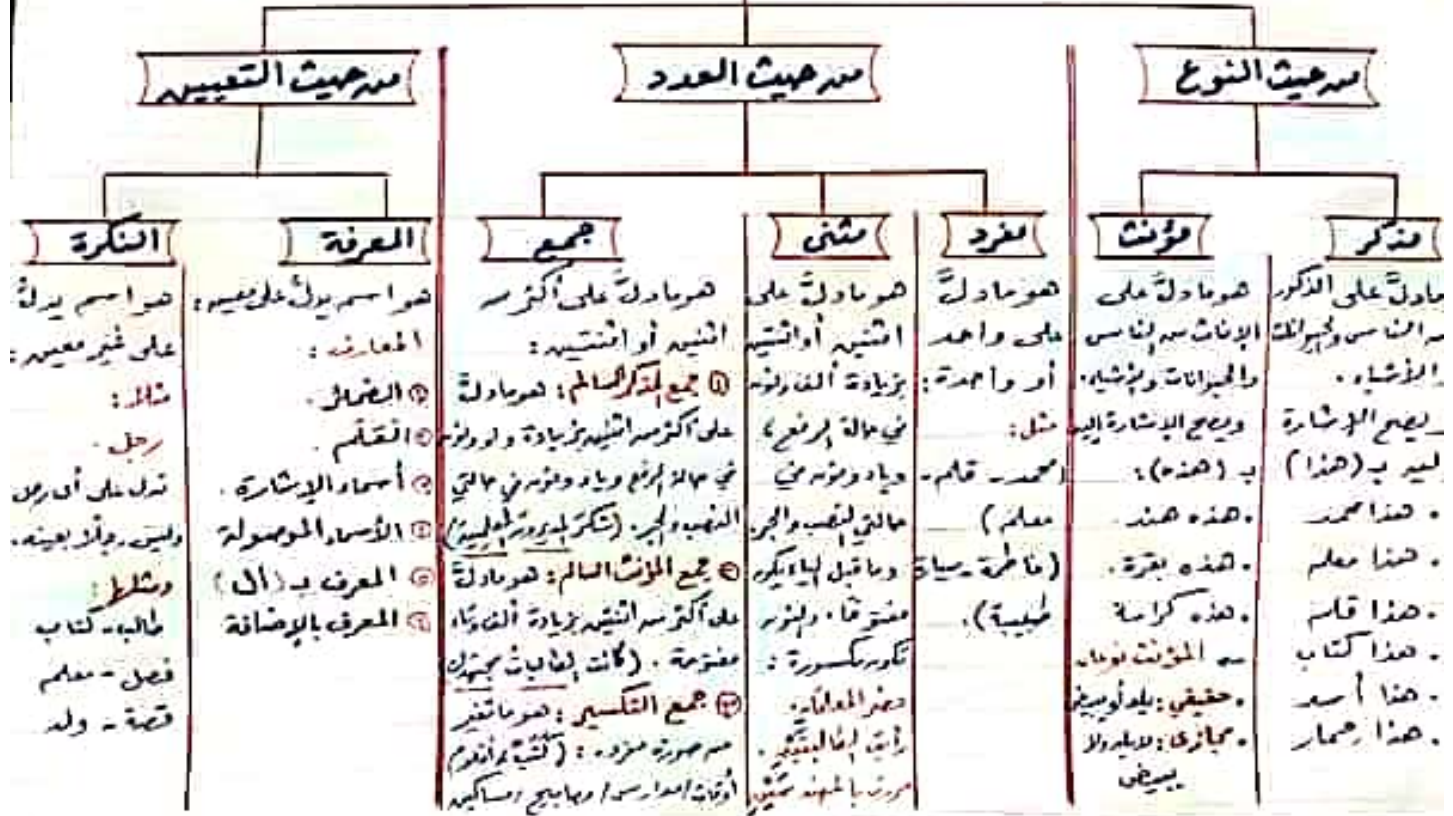 من حيث النوع
من حيث العدد
من حيث التعيين
مذكر
مؤنث
مفرد
مثنى
جمع
المعرفة
النكرة
مادلَّ على الذكور
من الناس والحيوانات
والأشياء.
ويصح الإشارة
إليه بـ (هذا)
. هذا محمد
. هذا معلم
. هذا قلم
. هذا كتاب
. هذا أسد
. هذا حمار
هو مادلَّ على
الإناث من الناس
والحيوانات والأشياء.
ويصح الإشارة إليه
بـ (هذه):
. هذه هند.
. هذه بقرة.
. هذه كراسة
ــ المؤنث نوعان
. حقيقي: يلد أو يبيض
. مجازى: لا يلد ولا
يبيض
هو مادلَّ
على واحد
أو واحدة:
مثل:
(محمد - قلم -
معلم)
(فاطمة -
طبيبة).
هو مادلَّ على
اثنين أو اثنتين
بزيادة ألف ونون
في حالة الرفع،
وياء ونون في
حالتي النصب والجر.
وما قبل الياء يكون
مفتوحًا، والنون
تكون مكسورة:
حضر المعلمان.
رأيت الطالبتَيْنِ.
مررت بالمهندسَيْنِ
هو مادلَّ على أكثر من
اثنين أو اثنتين:
① جمع المذكر السالم: هو مادلَّ
على أكثر من اثنين بزيادة واو ونون
في حالة الرفع وياء ونون في حالتي
النصب والجر. (شكرَ المديرون المعلمين)
② جمع المؤنث السالم: هو مادلَّ
على أكثر من اثنتين بزيادة ألف وتاء
مفتوحة. (كانت الطالبات مجتهدات)
③ جمع التكسير: هو ما تغير
من صورة مفرده: (كُتب، أقلام
أوقات/مدارس/ مصابيح /مساكين
هو اسم يدلُّ على معين:
المعارف:
① الضمائر.
② العَلَم.
③ أسماء الإشارة.
④ الأسماء الموصولة
⑤ المعرف بـ (ال)
⑥ المعرف بالإضافة
هو اسم يدلُّ
على غير معين:
مثال:
رجل.
تدل على أى رجل
وليس رجلًا بعينه.
ومثلها:
طالب - كتاب
فصل - معلم
قصة - ولد